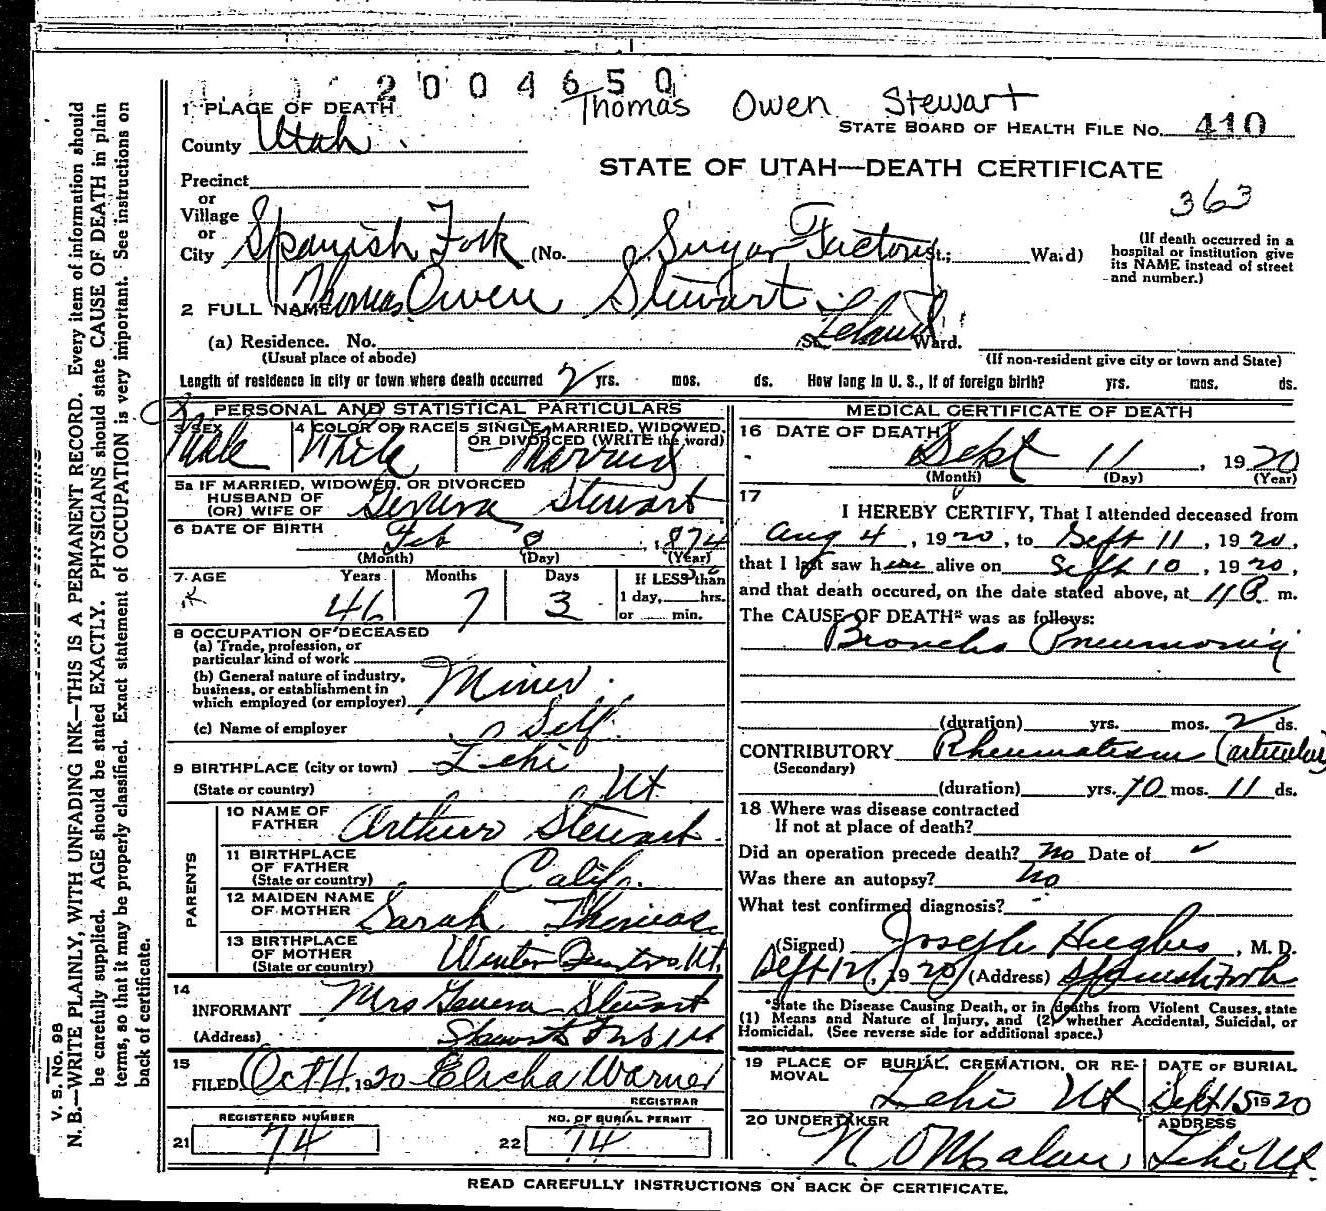 2004650
Thomas Owen Stewart
1 PLACE OF DEATH
STATE BOARD OF HEALTH FILE No. 410
County Utah
STATE OF UTAH—DEATH CERTIFICATE
Precinct
363
or
Village
or
City Spanish Fork (No. Sugar Factory St.; Ward)
(If death occurred in a hospital or institution give its NAME instead of street and number.)
2 FULL NAME Thomas Owen Stewart
(a) Residence. No. St. Leland Ward.
(Usual place of abode)
(If non-resident give city or town and State)
Length of residence in city or town where death occurred 2 yrs. mos. ds. How long in U. S., if of foreign birth? yrs. mos. ds.
PERSONAL AND STATISTICAL PARTICULARS
3 SEX 4 COLOR OR RACE 5 SINGLE, MARRIED, WIDOWED, OR DIVORCED (WRITE the word)
Male White Married
5a IF MARRIED, WIDOWED, OR DIVORCED
HUSBAND OF
(OR) WIFE OF Geneva Stewart
6 DATE OF BIRTH Feb 8, 1874
(Month) (Day) (Year)
7 AGE Years Months Days If LESS than
46 7 3 1 day, hrs.
or min.
8 OCCUPATION OF DECEASED
(a) Trade, profession, or
particular kind of work
(b) General nature of industry,
business, or establishment in
which employed (or employer) Miner
(c) Name of employer Self
9 BIRTHPLACE (city or town) Lehi
(State or country) Ut
PARENTS
10 NAME OF
FATHER Arthur Stewart
11 BIRTHPLACE
OF FATHER
(State or country) Calif.
12 MAIDEN NAME
OF MOTHER Sarah Thomas
13 BIRTHPLACE
OF MOTHER
(State or country) Winter Quarters, Ut.
14
INFORMANT Mrs Geneva Stewart
(Address) Spanish Fork Ut
15
FILED Oct 4, 1920 Elisha Warner
REGISTRAR
REGISTERED NUMBER NO. OF BURIAL PERMIT
21 74 22 74
MEDICAL CERTIFICATE OF DEATH
16 DATE OF DEATH
Sept 11, 1920
(Month) (Day) (Year)
17
I HEREBY CERTIFY, That I attended deceased from
Aug 4, 1920, to Sept 11, 1920,
that I last saw him alive on Sept 10, 1920,
and that death occured, on the date stated above, at 11 P. m.
The CAUSE OF DEATH* was as follows:
Broncho Pneumonia
(duration) yrs. mos. 2 ds.
CONTRIBUTORY Rheumatism (articular)
(Secondary)
(duration) yrs. 10 mos. 11 ds.
18 Where was disease contracted
If not at place of death?
Did an operation precede death? No Date of
Was there an autopsy? No
What test confirmed diagnosis?
(Signed) Joseph Hughes, M. D.
Sept 12, 1920 (Address) Spanish Fork
*State the Disease Causing Death, or in deaths from Violent Causes, state
(1) Means and Nature of Injury, and (2) whether Accidental, Suicidal, or
Homicidal. (See reverse side for additional space.)
19 PLACE OF BURIAL, CREMATION, OR RE-
MOVAL
DATE OF BURIAL
Lehi Ut Sept 15 1920
20 UNDERTAKER ADDRESS
N O Malan, Lehi, Ut
READ CAREFULLY INSTRUCTIONS ON BACK OF CERTIFICATE.
V. S. No. 98
N. B.—WRITE PLAINLY, WITH UNFADING INK—THIS IS A PERMANENT RECORD. Every item of information should
be carefully supplied. AGE should be stated EXACTLY. PHYSICIANS should state CAUSE OF DEATH in plain
terms, so that it may be properly classified. Exact statement of OCCUPATION is very important. See instructions on
back of certificate.